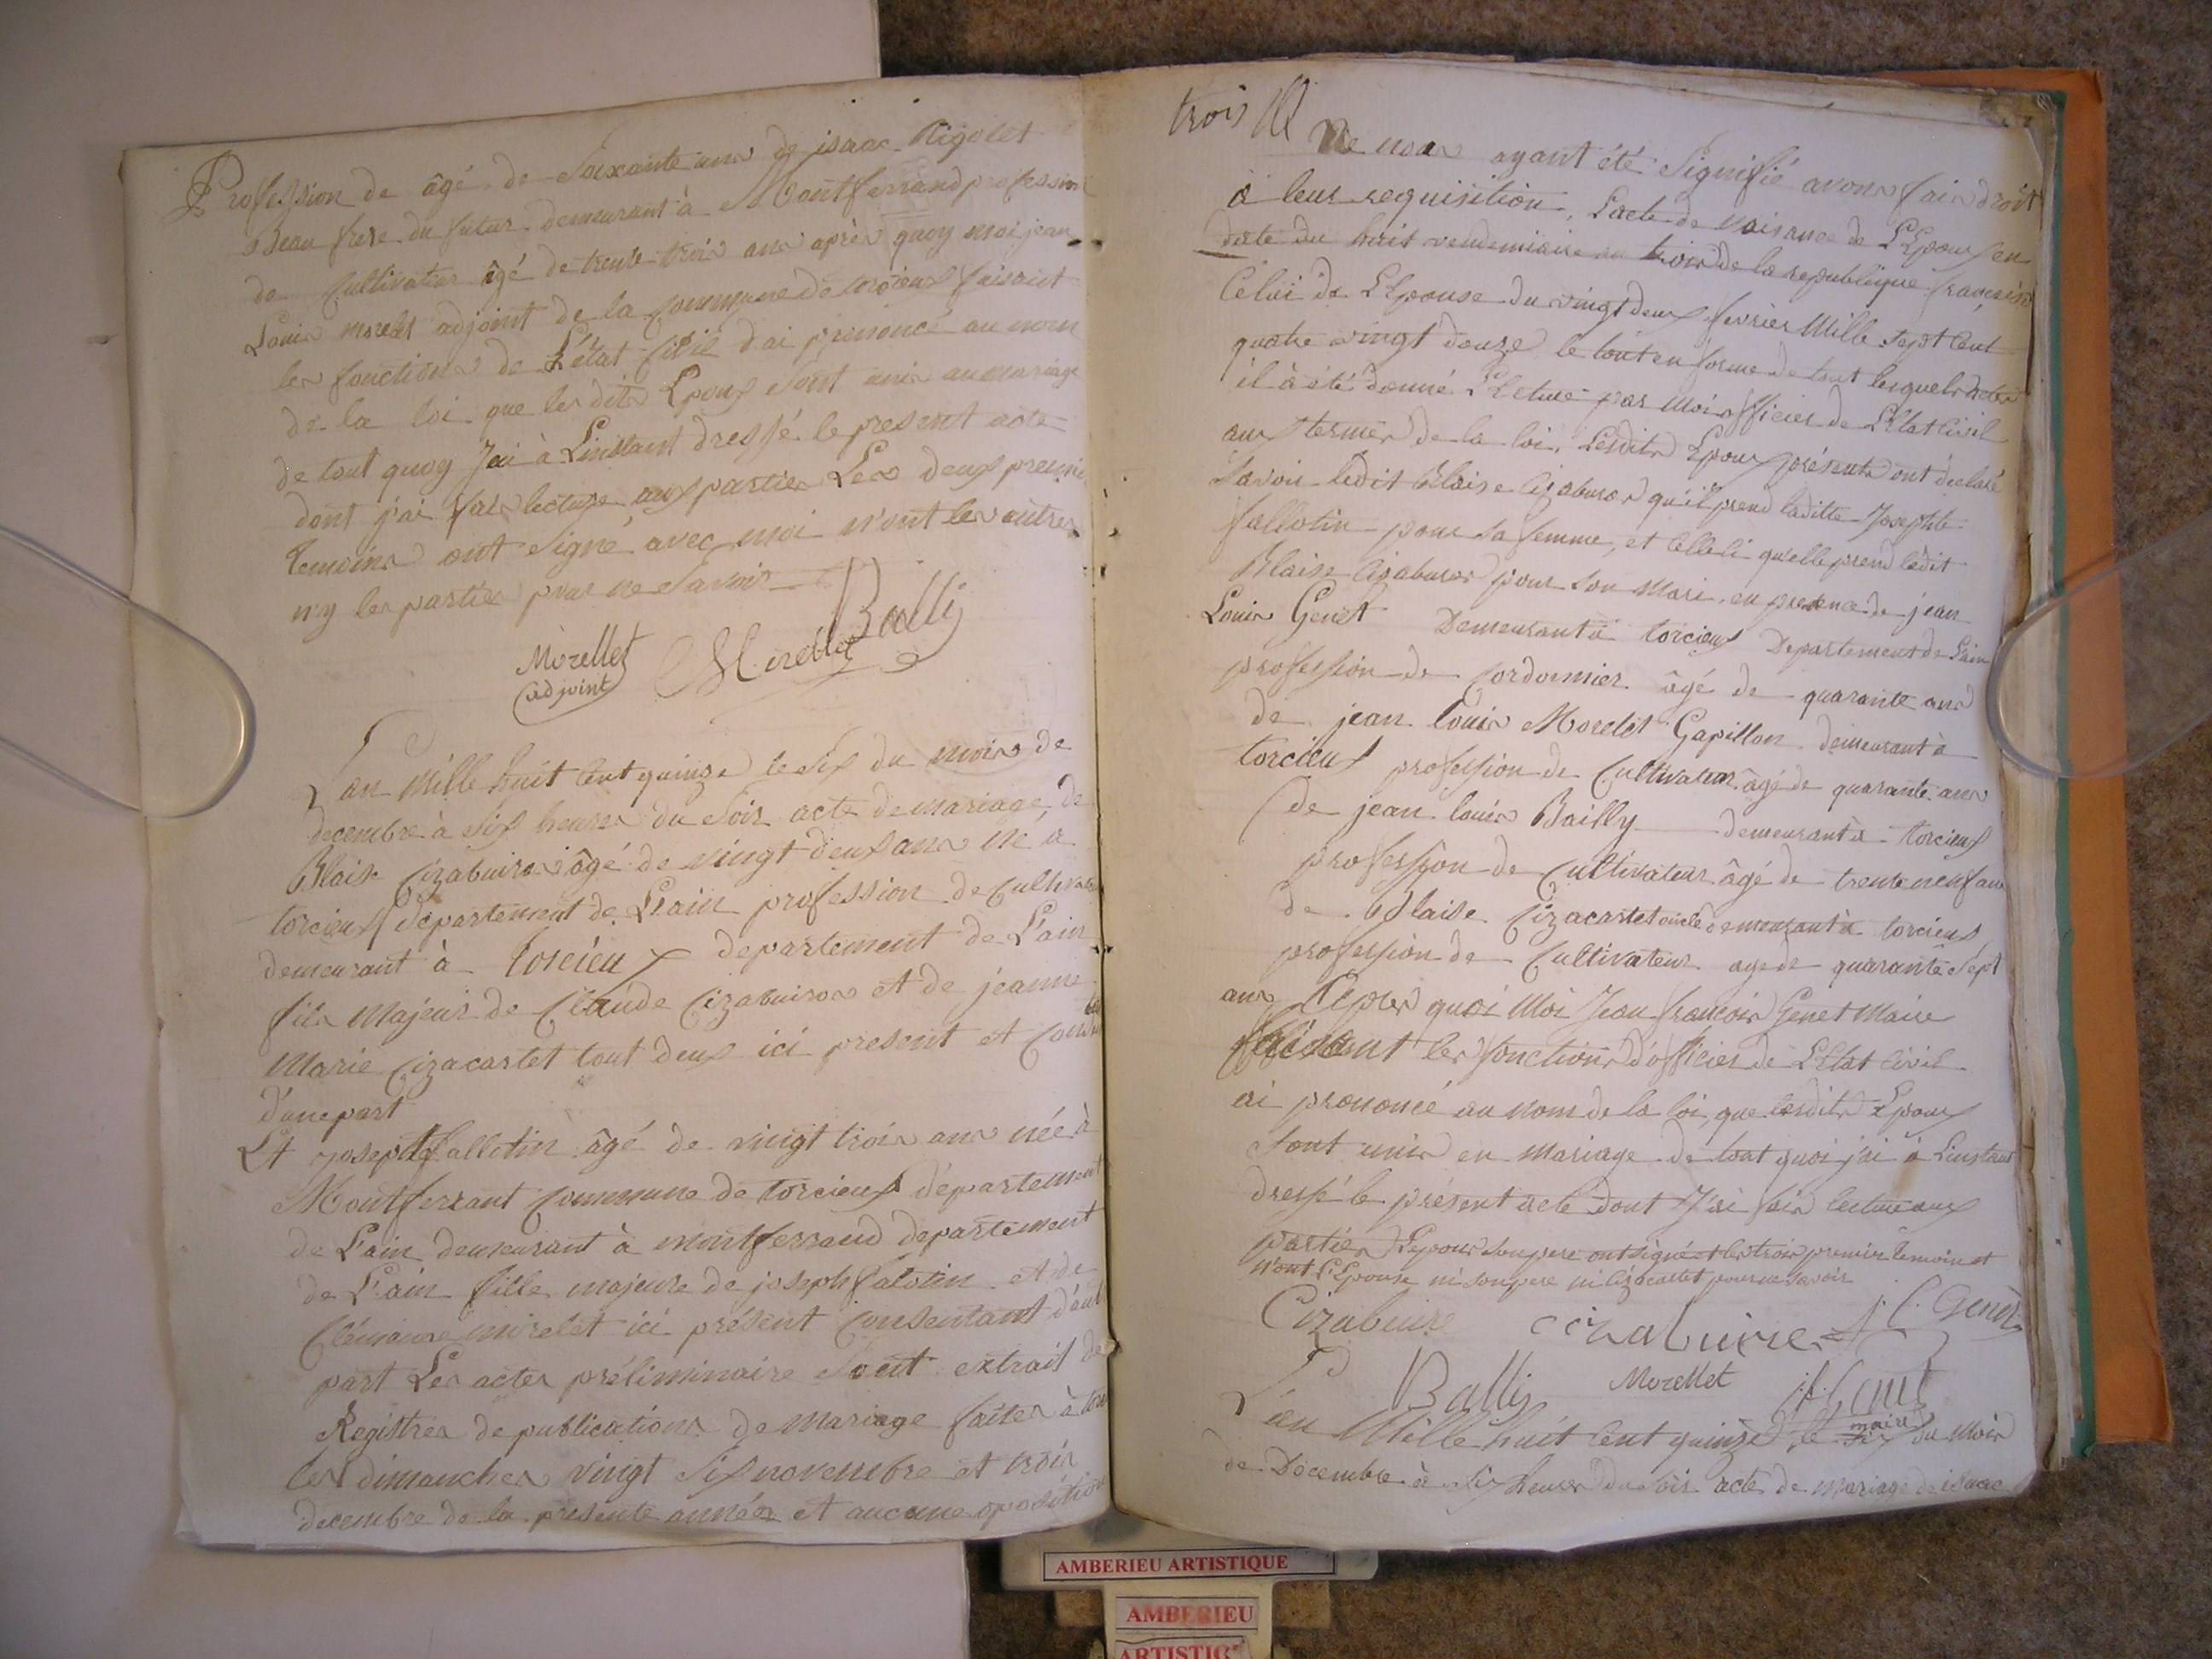 Profession de âgé de Soixante ans de isaac Rigolet
Beau frere du futur demeurant à Montferrand profession
de Cultivateur âgé de trente trois ans après quoy moi jean
Louis morelet adjoint de la Commune de torcieux faisant
les fonctions de L'état Civil d'ai prononcé au nom
de la loi que les dits Epoux Sont unis au mariage
de tout quoy J'ai à L'instant dressé le present acte
dont j'ai fais lecture aux parties Les deux premie
temoins ont Signé avec moi n'ont les autres
n'y les parties pour ne Savoir
Bally
Morellet
adjoint
Lan Mille huit Cent quinze le Six du mois de
decembre à Six heures du Soir acte de mariage de
Blaise Cizabuire âgé de vingt deux ans né a
torcieux departement de L'ain profession de Cultivate
demeurant à torcieux departement de L'ain
fils Majeur de Claude Cizabuire et de jeanne
Marie Cizacastet tout deux ici present et
d'une part
Et josephte fallotin âgé de vingt trois ans née à
Montferrant Commune de torcieux département
de L'ain demeurant à montferrand departement
de L'ain fille majeure de joseph falotin et de
morelet ici présent Consentant d'aut
part Les actes préliminaire Sont extrait de
Registres de publications de Mariage faites à
les dimanches vingt Six novembre et trois
decembre de la presente année et aucune oposition
trois
Ne nous ayant été Signifié avons fais droit
à leur requisition, L'acte de naisance de L'Epoux en
date du huit vendemiaire an trois de la republique francaise
Celui de L'Epouse du vingt deux fevrier Mille Sept Cent
quatre vingt douze le tout en forme de tout lesquels actes
il à été donné Lecture par Moi officier de L'Etat Civil
aux termes de la loi. Lesdits Epoux présents ont déclaré
Savoir ledit Blaise Cizabuire qu'il prend laditte Josephte
fallotin pour sa femme, et Celle ci qu'elle prend ledit
Blaise Cizabuire pour Son Mari, en presence de jean
Louis Genet Demeurant à torcieux Departement de L'ain
profession de Cordonnier âgé de quarante ans
de jean Louis Morelet Gapillon demeurant à
torcieux profession de Cultivateur âgé de quarante ans
de jean louis Bailly demeurant à torcieux
profession de Cultivateur âgé de trente neuf ans
de Blaise Cizacastet oncle demeurant à torcieux
profession de Cultivateur age de quarante Sept
ans Après quoi Moi Jean francois Genet Maire
faisant les fonctions d'officier de L'Etat Civil
ai prononcé au nom de la loi, que lesdits Epoux
Sont unis en Mariage de tout quoi j'ai à L'instant
dressé le présent acte dont J'ai fais lecture aux
parties L'epoux Son pere ont signé et les trois premier temoin et
n'ont L'Epouse ni Son pere ni Cizacastet pour ne Savoir
Cizabuire Cizabuire j. l. Genet
Bally Morellet j. f. Genet
maire
L'an Mille huit Cent quinze le Six du Mois
de Decembre à Six heures du Soir acte de Mariage de isaac
AMBERIEU ARTISTIQUE
AMBERIEU
ARTISTIQ